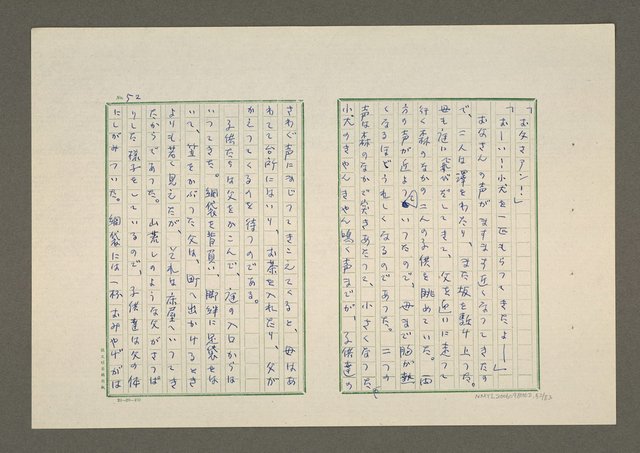 「お父さアン！」
「おーい！小犬を一匹もらってきたよーー」
お父さんの声がますます近くなってきたの
で、二人は澤をわたり、また坂を駈け上った。
母も庭に飛びだしてきて、父を迎いに走って
行く森のなかの二人の子供を眺めていた。両
方の声が近よっていったので、母まで胸が熱
くなるほどうれしくなるのであった。二つの
声は森のなかで突きあたって、小さくなった。
小犬のきゃんきゃん鳴く声までが、子供達の
さわぐ声にまじってきこえてくると、母はあ
わてて台所にはいり、お茶を入れたり、父が
かえってくるのを待つのである。
子供たちは父をかこんで、庭の入口からは
いってきた。網袋を背負い、脚絆に足袋をは
いて、笠をかぶった父は、町へ出かけるとき
よりも若く見えたが、それは床屋へいってき
たからであった。山荒しのような父がさっぱ
りした様子をしているので、子供達は父の体
にしがみついた。網袋には一杯おみやげがは
No. 52
20×20=400